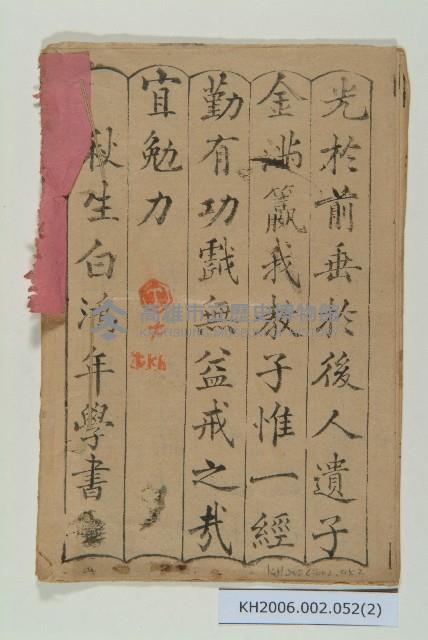 光於前垂於後人遺子
金滿籯我教子惟一經
勤有功戲無益戒之哉
宜勉力
秋生白鴻年學書
高雄市立歷史博物館
KAOHSIUNG MUSEUM OF HISTORY
KH2006.002.052
KH2006.002.052(2)